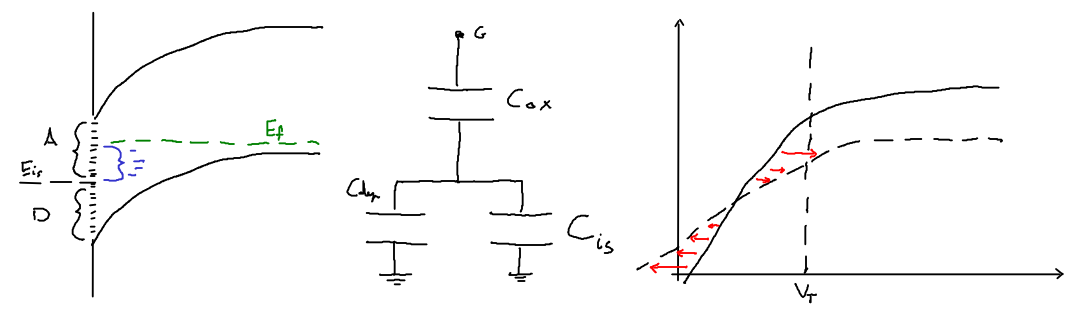 A
E_is
D
E_f
G
C_ox
C_dep
C_is
V_T